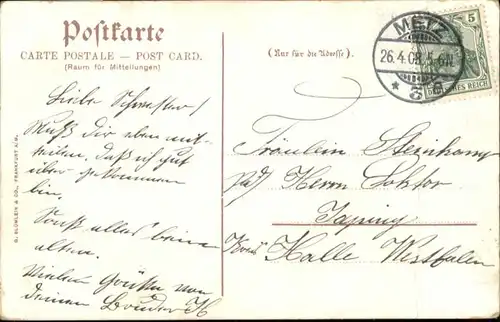 Postkarte
CARTE POSTALE — POST CARD.
(Raum für Mitteilungen)
(Nur für die Adresse).
METZ
26.4.09. 5-6N.
* 3 *
5
DEUTSCHES REICH
Liebe Schwester!
Muß Dir eben mit-
teilen, daß ich gut
über gekommen
bin.
Sonst alles beim
alten.
Vielen Grüße von
Deinen Bruder H
Fräulein
p/ad Herrn Doktor
Halle Westfalen